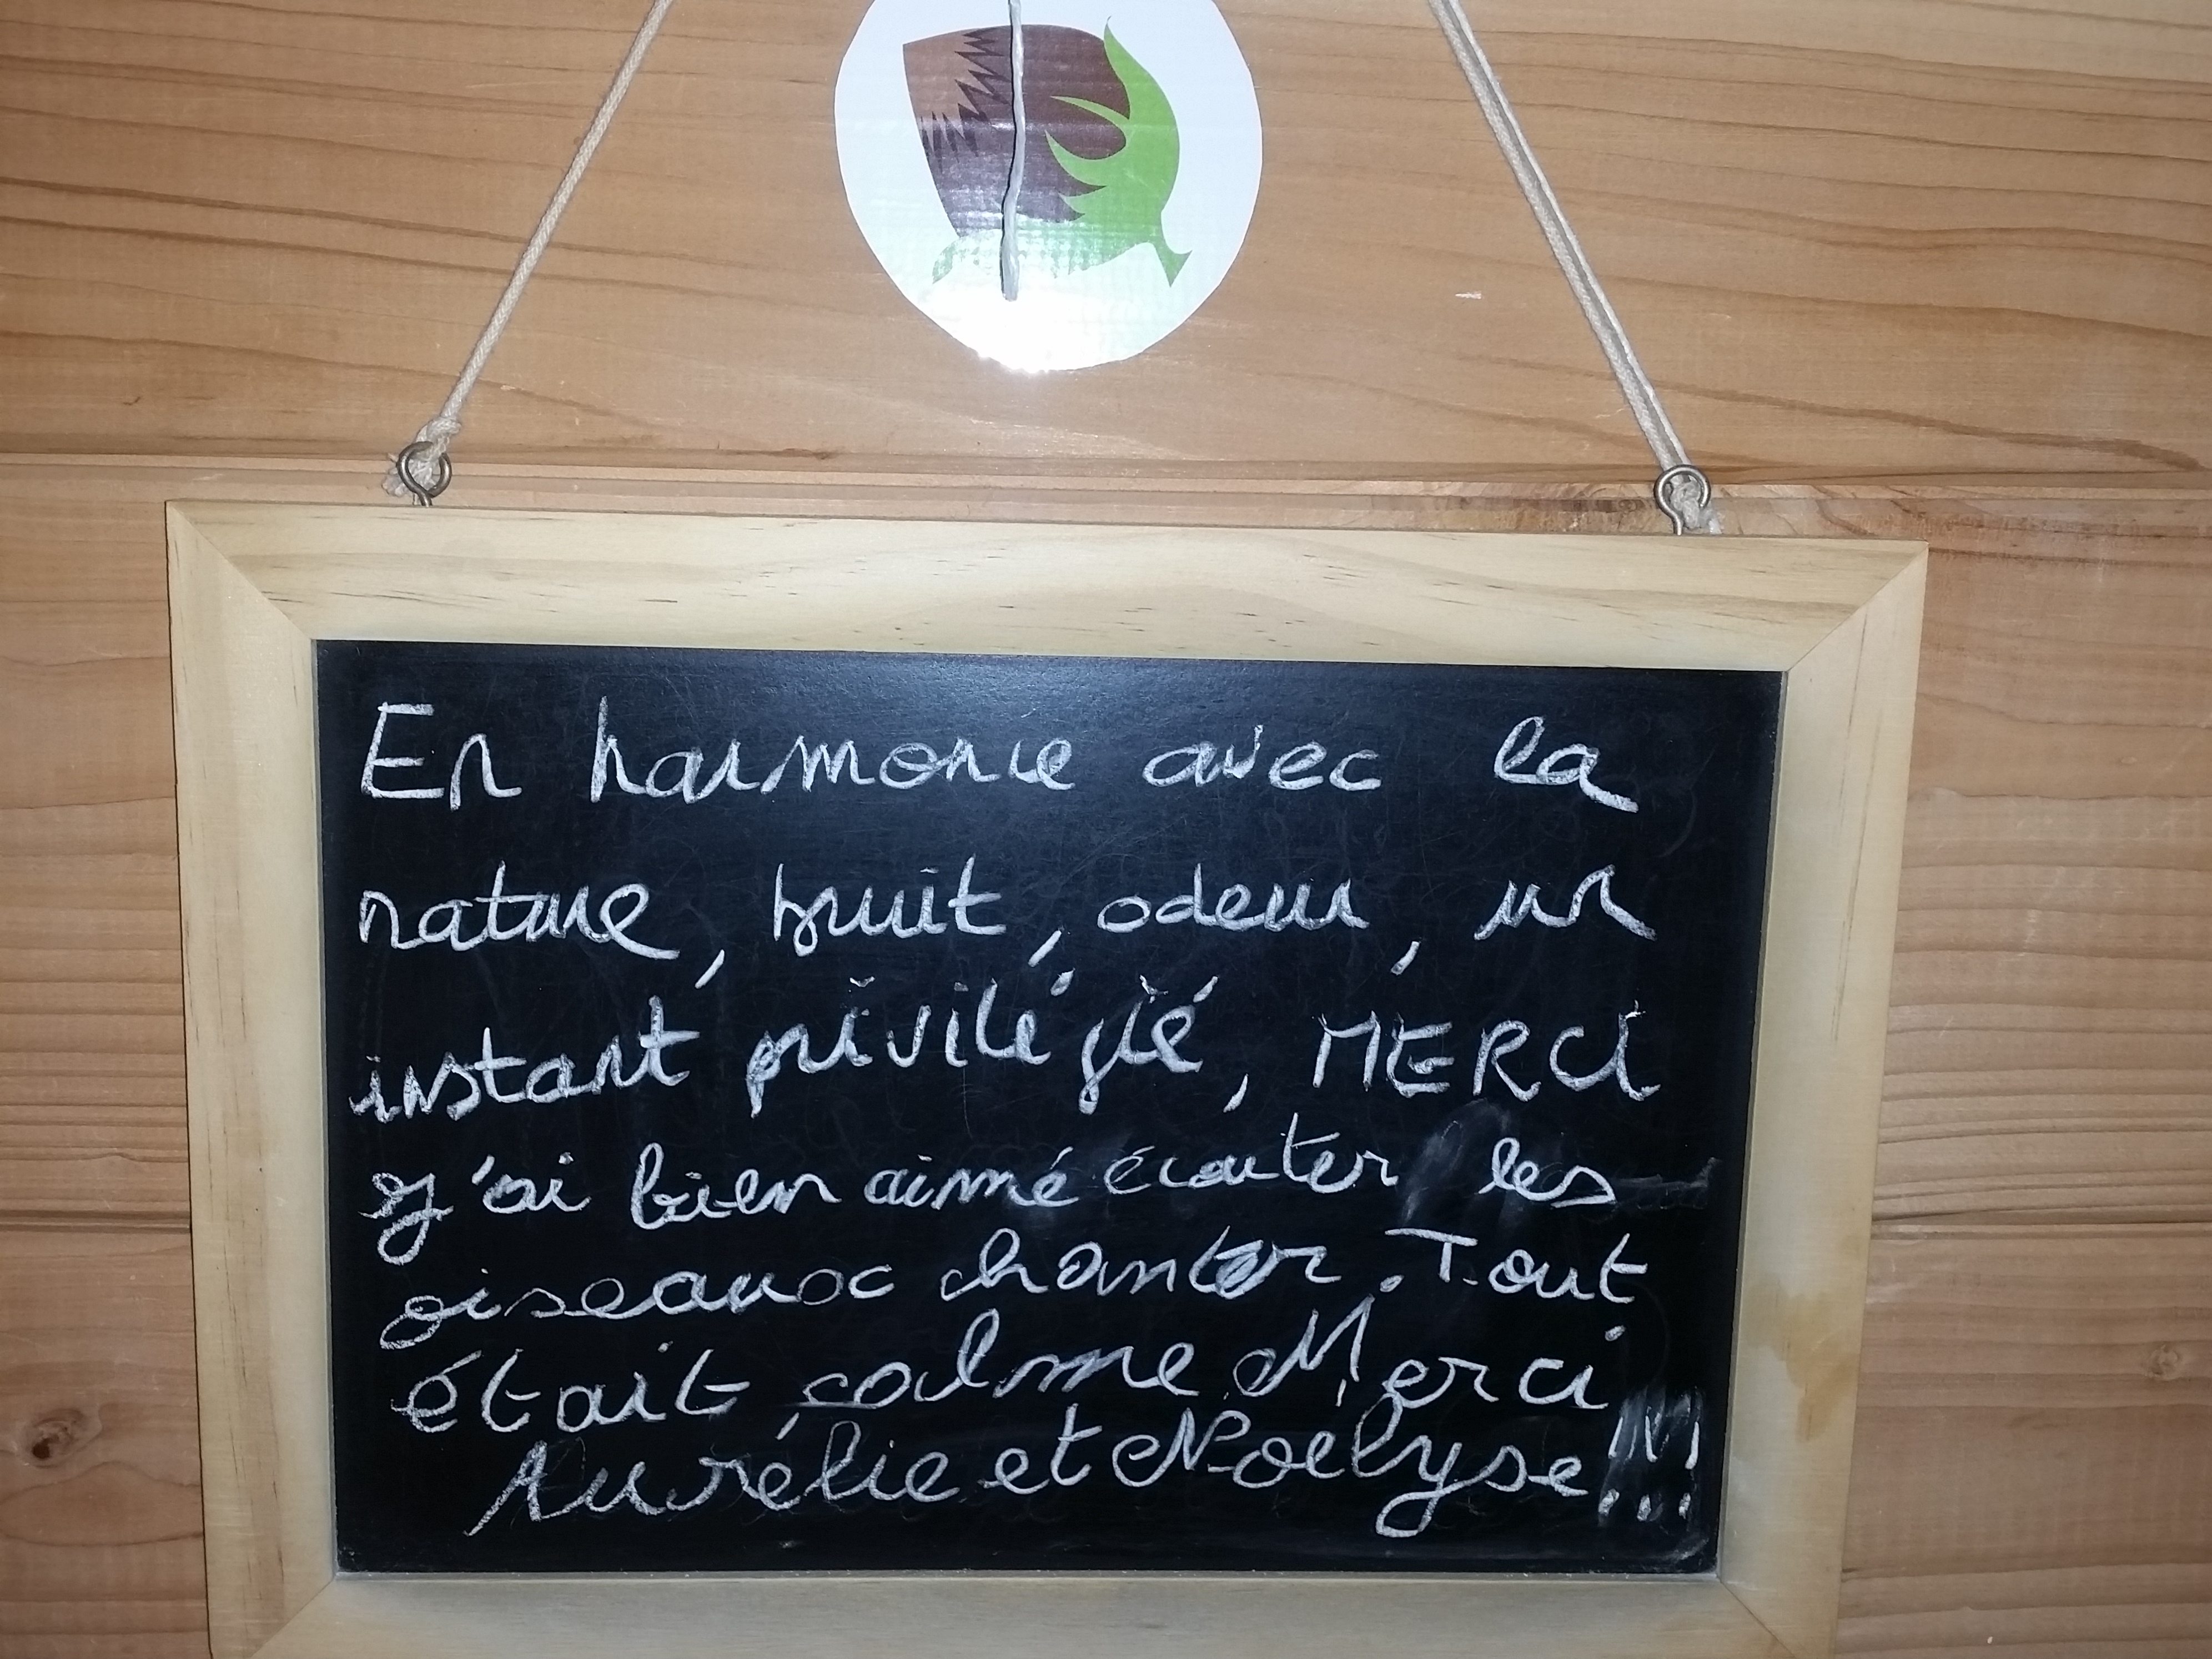 En harmonie avec la
nature, bruit, odeur, un
instant privilégié, MERCI
J'ai bien aimé écouter les
oiseaux chanter. Tout
était calme Merci
Aurélie et Noélyse!!!